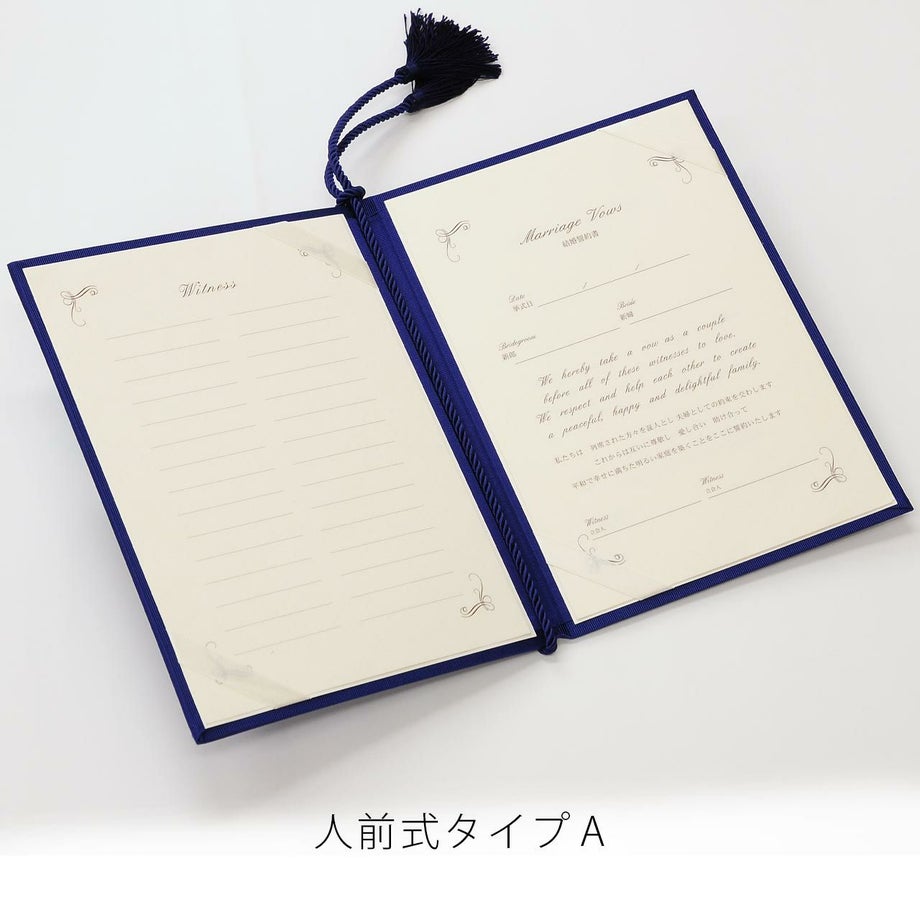 Witness
Marriage Vows
結婚誓約書
Date
挙式日
/ /
Bridegroom
新郎
Bride
新婦
We hereby take a vow as a couple
before all of these witnesses to love.
We respect and help each other to create
a peaceful, happy and delightful family.
私たちは 列席された方々を証人とし 夫婦としての約束を交わします
これからは互いに尊敬し 愛し合い 助け合って
平和で幸せに満ちた明るい家庭を築くことをここに誓約いたします
Witness
立会人
Witness
立会人
人前式タイプA